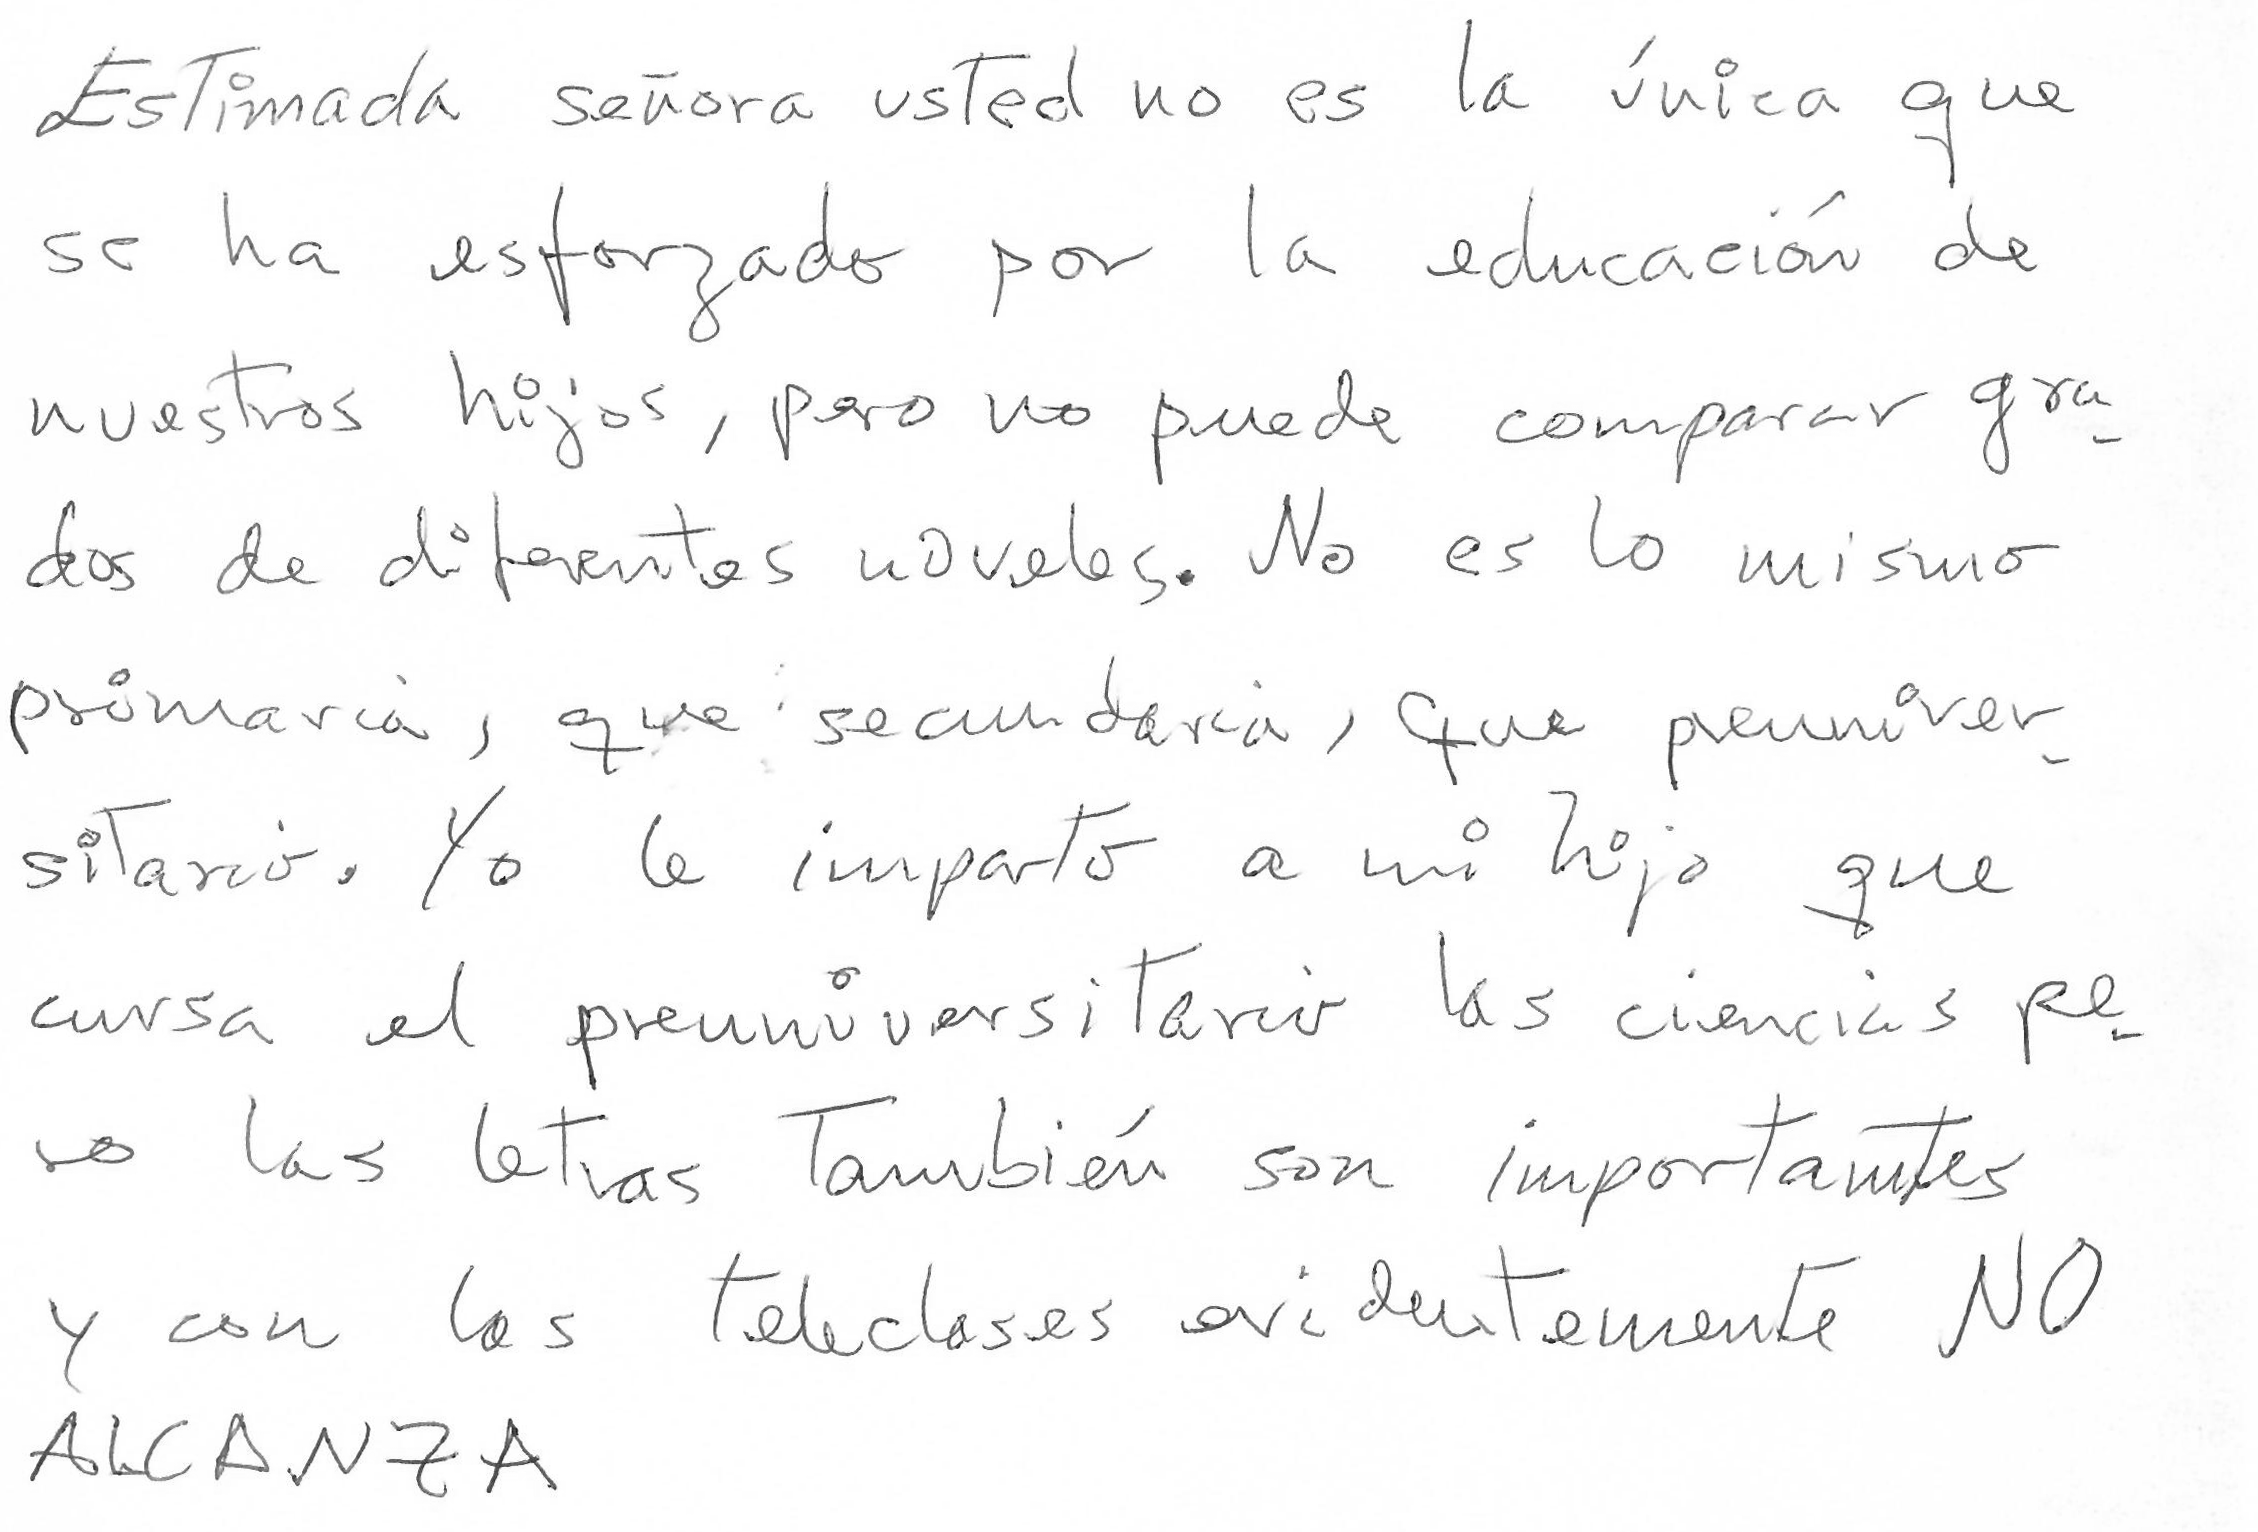 Estimada señora usted no es la única que
se ha esforzado por la educación de
nuestros hijos, pero no puede comparar gra-
dos de diferentes noveles. No es lo mismo
primaria, que secundaria, que preuniver-
sitario. Yo le imparto a mi hijo que
cursa el preuniversitario las ciencias pe-
ro las letras también son importantes
y con las teleclases evidentemente NO
ALCANZA